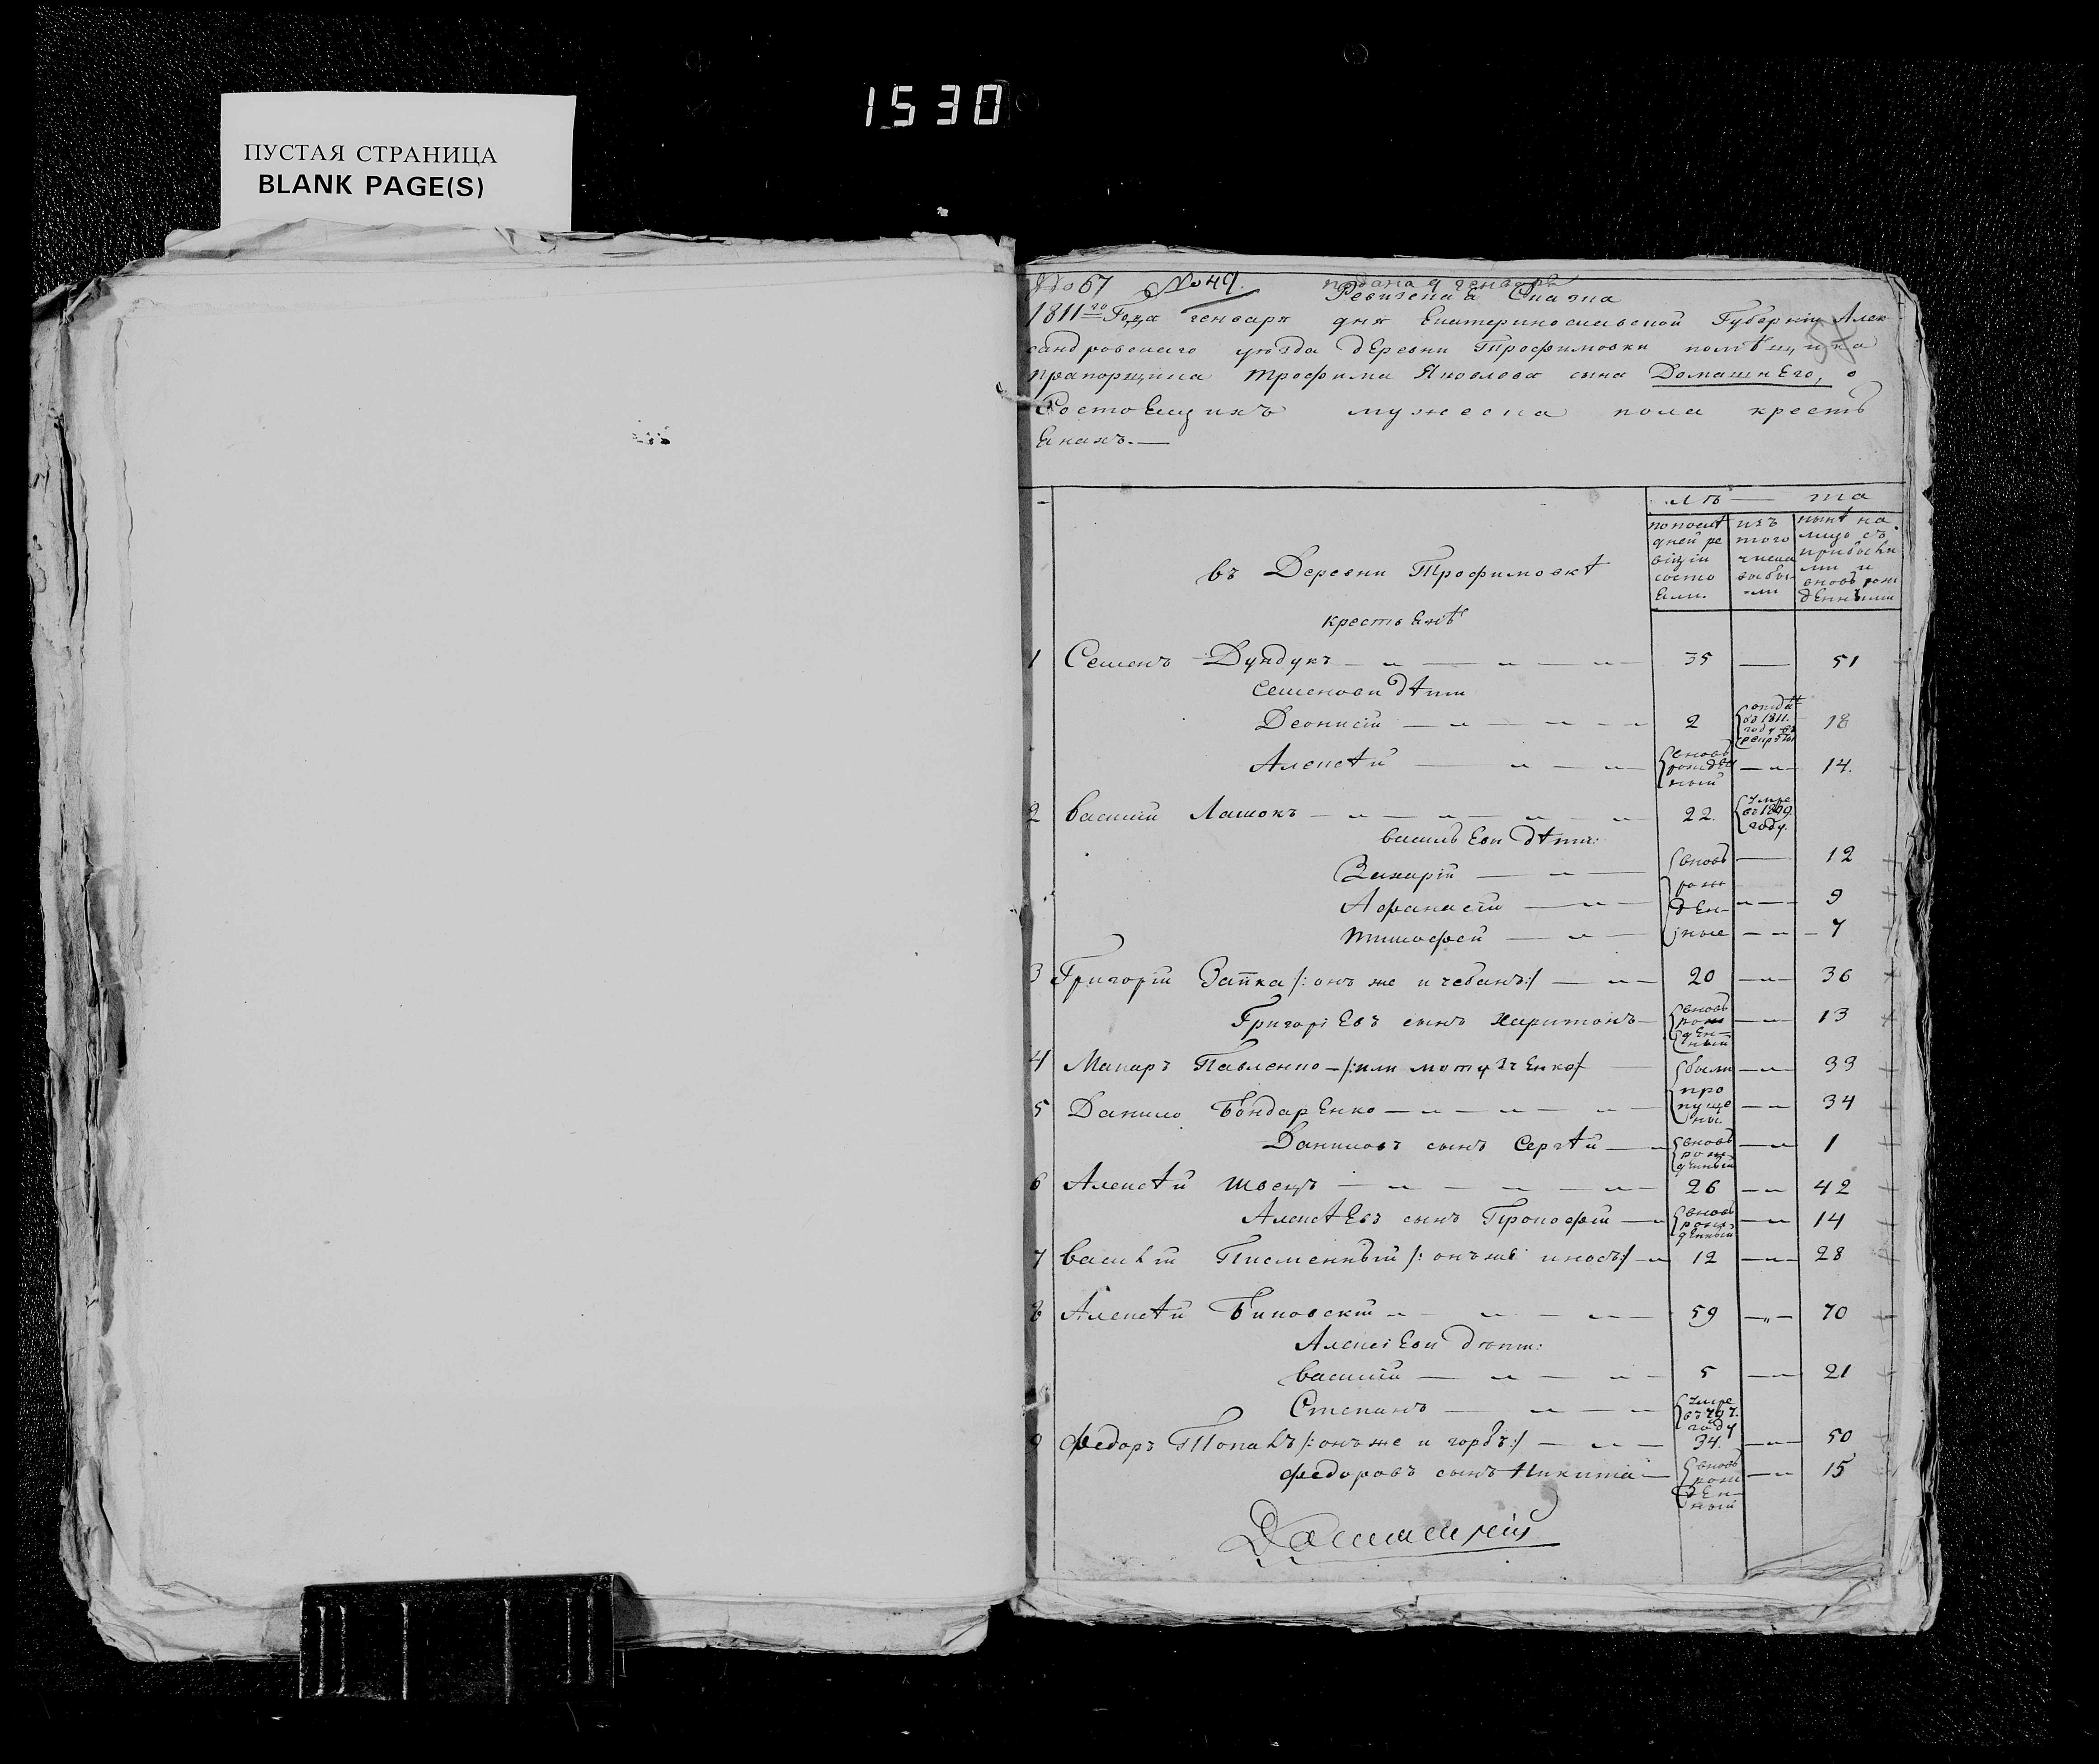 1530
ПУСТАЯ СТРАНИЦА
BLANK PAGE(S)
№ 67 № 49. подана 9 генваря
Ревизская Сказка
1811го Года генваря дня Екатеринославской Губернии Алек
сандровского уезда деревни Трофимовки помѣщика
прапорщика трофима Яковлева сына Домашнего, о
Состоящихъ мужеска пола кресть
янахъ.—
лѣ — та
по послѣ
дней ре
вiziи
состо
яли.
изъ
того
числа
выбы
ли
нынѣ на
лицо съ
прибылы
ми и
вновь рож
денными
въ Деревни Трофимовкѣ
крестьянѣ
1 Семенъ Дундукъ 35 — 51
семенови дѣти
Деонисий 2 отдаѣ въ 1811. году въ рекруты 18
Алексѣй вновь рожден ный 14.
2 василий Лашокъ 22. умре въ 1809 году.
васильеви дѣти:
Захарий вновь — 12
Афанасий рож ден- 9
тимофей ные 7
3 Григорий Заика /:онъ же и чебанъ:/ 20 36
Григориевъ сынъ харитонъ вновь рож ден- ный 13
4 Макаръ Павленко /:или мотузенко/ были 33
5 Данило Бондаренко про пуще ны. 34
Даниловъ сынъ Сергѣй вновь рож денный 1
6 Алексѣй швецъ 26 42
Алексѣевъ сынъ Прокофий вновь рож денный 14
7 василий Писменный /:онъ же и носъ:/ 12 28
8 Алексѣй Биковский 59 70
Алексиеви дѣти:
василий 5 21
Степанъ умре въ 797. году
9 федоръ Топалъ /:онъ же и горбъ:/ 34. 50
федоровъ сынъ Никита вновь рож ден- ный 15
Домашний